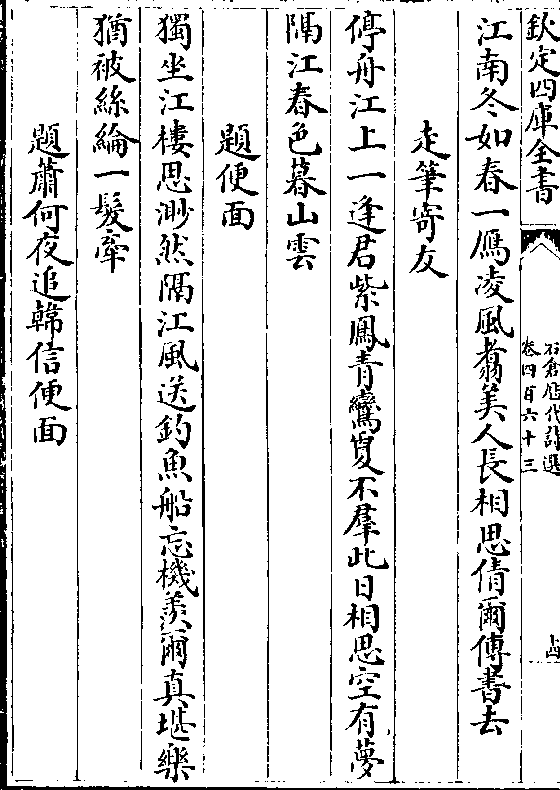 欽定四庫全書
石倉歷代詩選
卷四百六十三
江南冬如春一鴈凌風翥美人長相思倩爾傳書去
走筆寄友
停舟江上一逢君紫鳳青鸞夐不羣此日相思空有夢
隔江春色暮山雲
題便面
獨坐江樓思渺然隔江風送釣魚船忘機羨爾真堪樂
猶被絲綸一髮牽
題蕭何夜追韓信便面